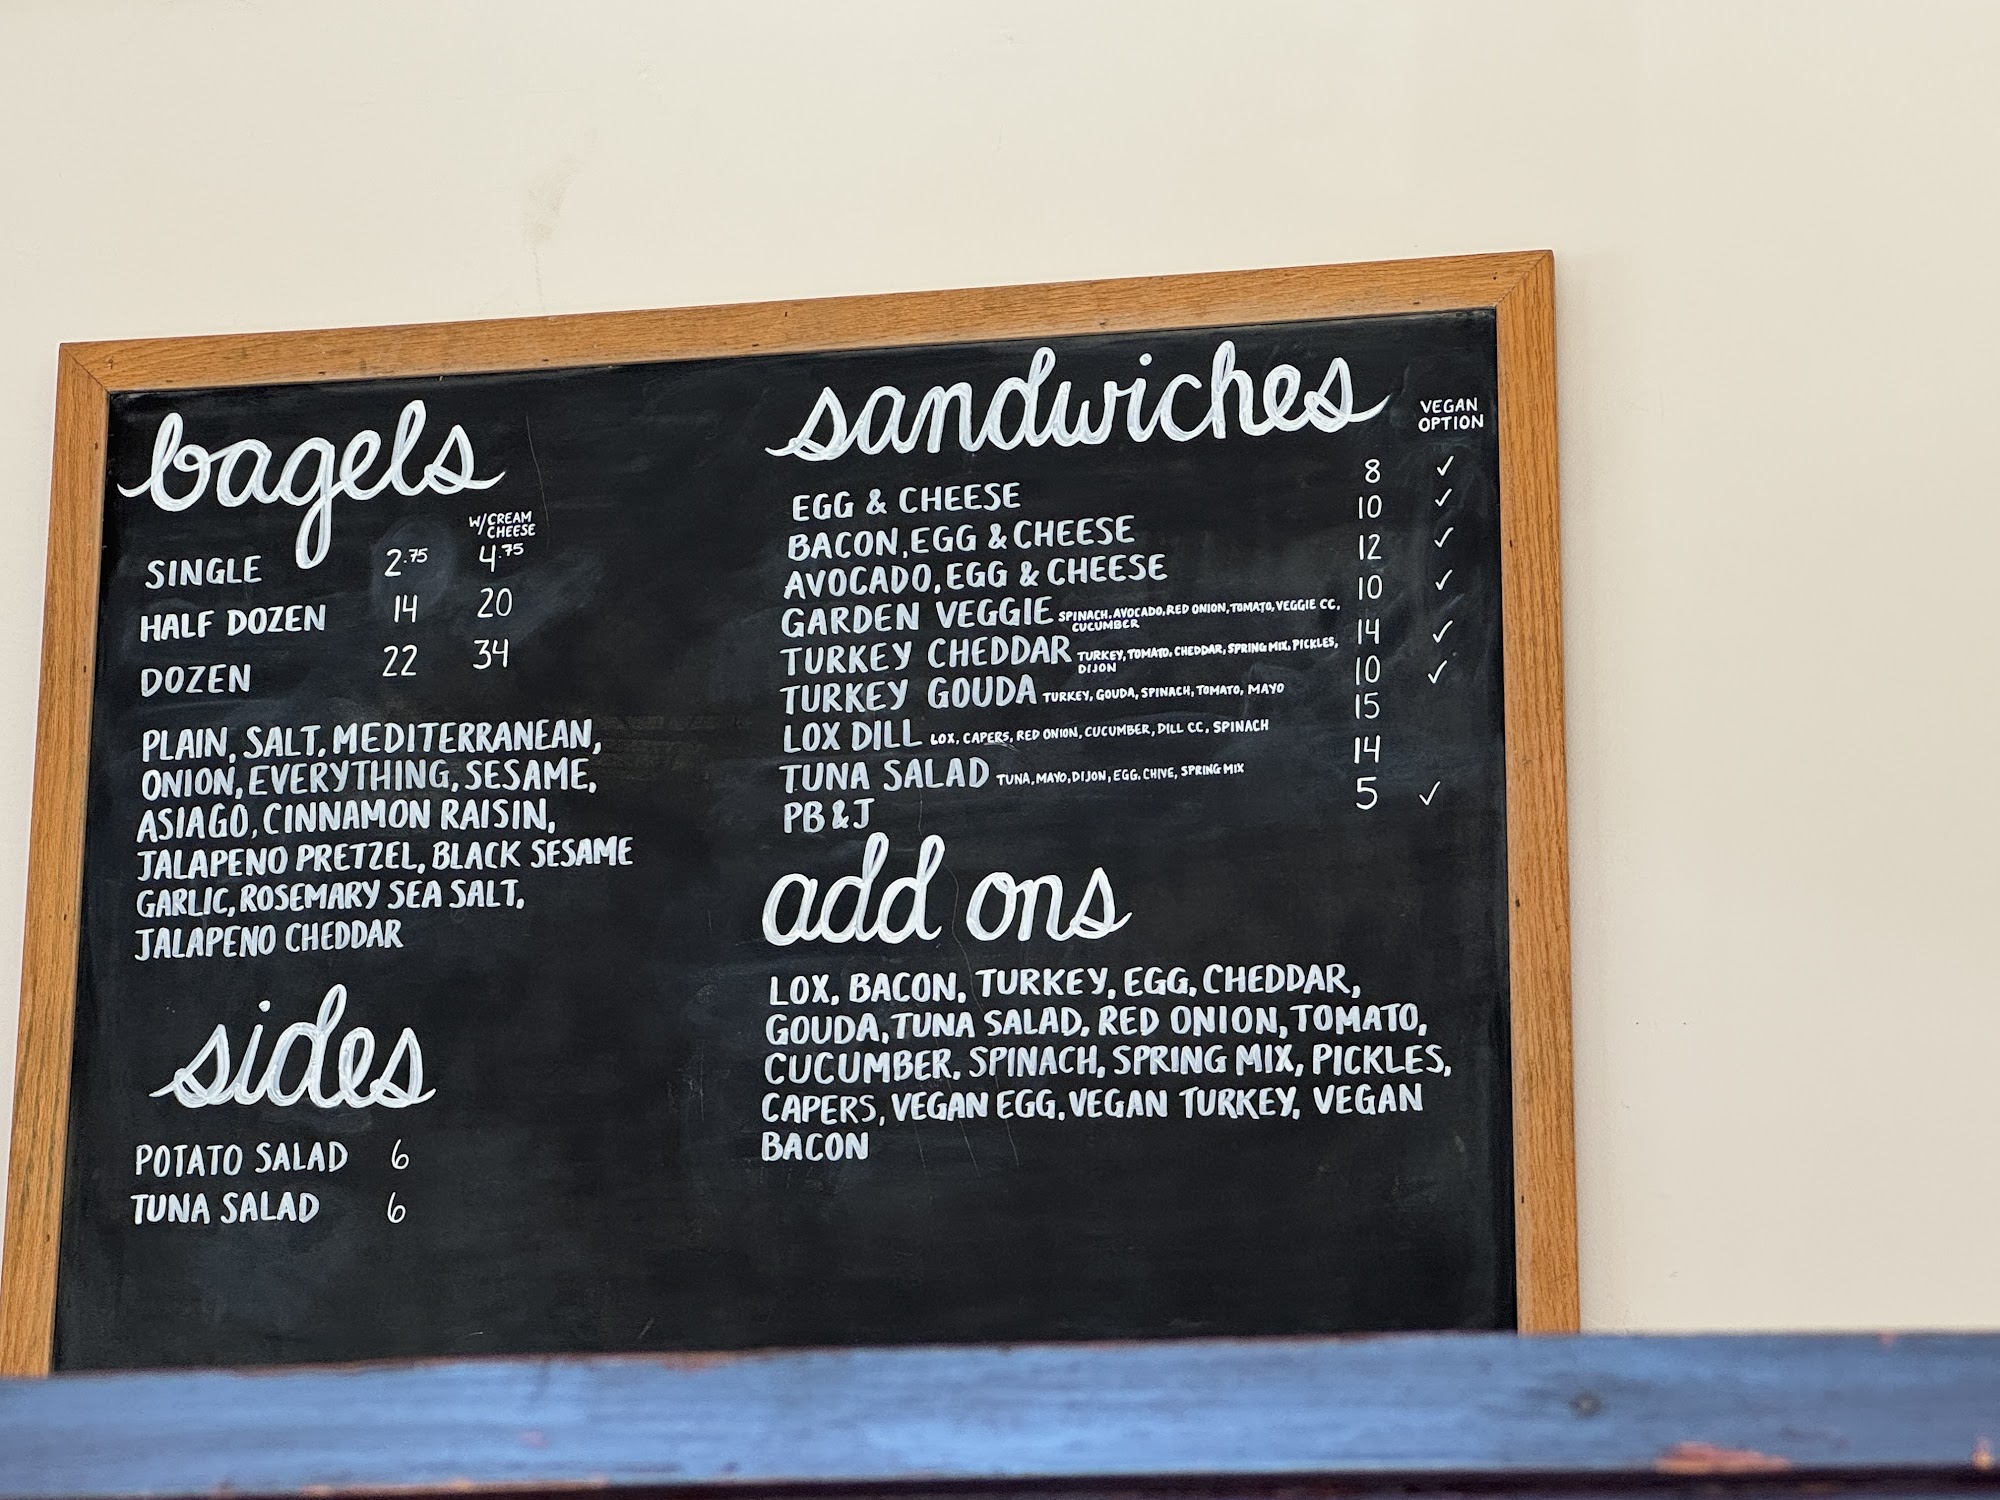 bagels
W/CREAM CHEESE
SINGLE 2.75 4.75
HALF DOZEN 14 20
DOZEN 22 34
PLAIN, SALT, MEDITERRANEAN,
ONION, EVERYTHING, SESAME,
ASIAGO, CINNAMON RAISIN,
JALAPENO PRETZEL, BLACK SESAME
GARLIC, ROSEMARY SEA SALT,
JALAPENO CHEDDAR
sides
POTATO SALAD 6
TUNA SALAD 6
sandwiches
VEGAN
OPTION
EGG & CHEESE 8 ✓
BACON, EGG & CHEESE 10 ✓
AVOCADO, EGG & CHEESE 12 ✓
GARDEN VEGGIE SPINACH, AVOCADO, RED ONION, TOMATO, VEGGIE CC, 10 ✓
CUCUMBER
TURKEY CHEDDAR TURKEY, TOMATO, CHEDDAR, SPRING MIX, PICKLES, 14 ✓
DIJON
TURKEY GOUDA TURKEY, GOUDA, SPINACH, TOMATO, MAYO 10 ✓
LOX DILL LOX, CAPERS, RED ONION, CUCUMBER, DILL CC, SPINACH 15
TUNA SALAD TUNA, MAYO, DIJON, EGG, CHIVE, SPRING MIX 14
PB & J 5 ✓
add ons
LOX, BACON, TURKEY, EGG, CHEDDAR,
GOUDA, TUNA SALAD, RED ONION, TOMATO,
CUCUMBER, SPINACH, SPRING MIX, PICKLES,
CAPERS, VEGAN EGG, VEGAN TURKEY, VEGAN
BACON